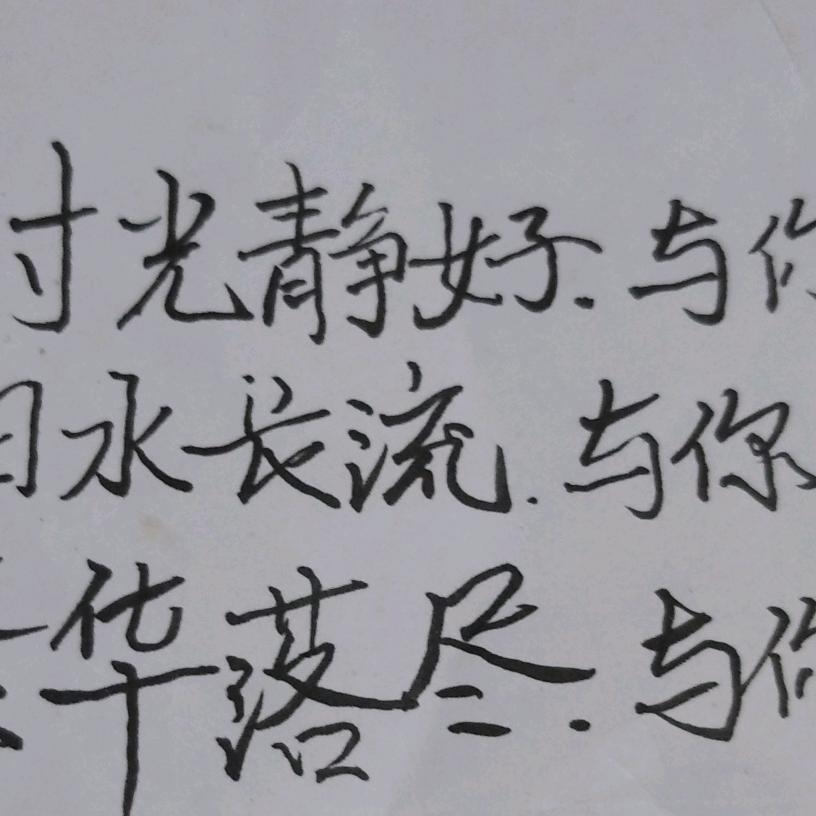 时光静好.与你
水长流.与你
华落尽.与你